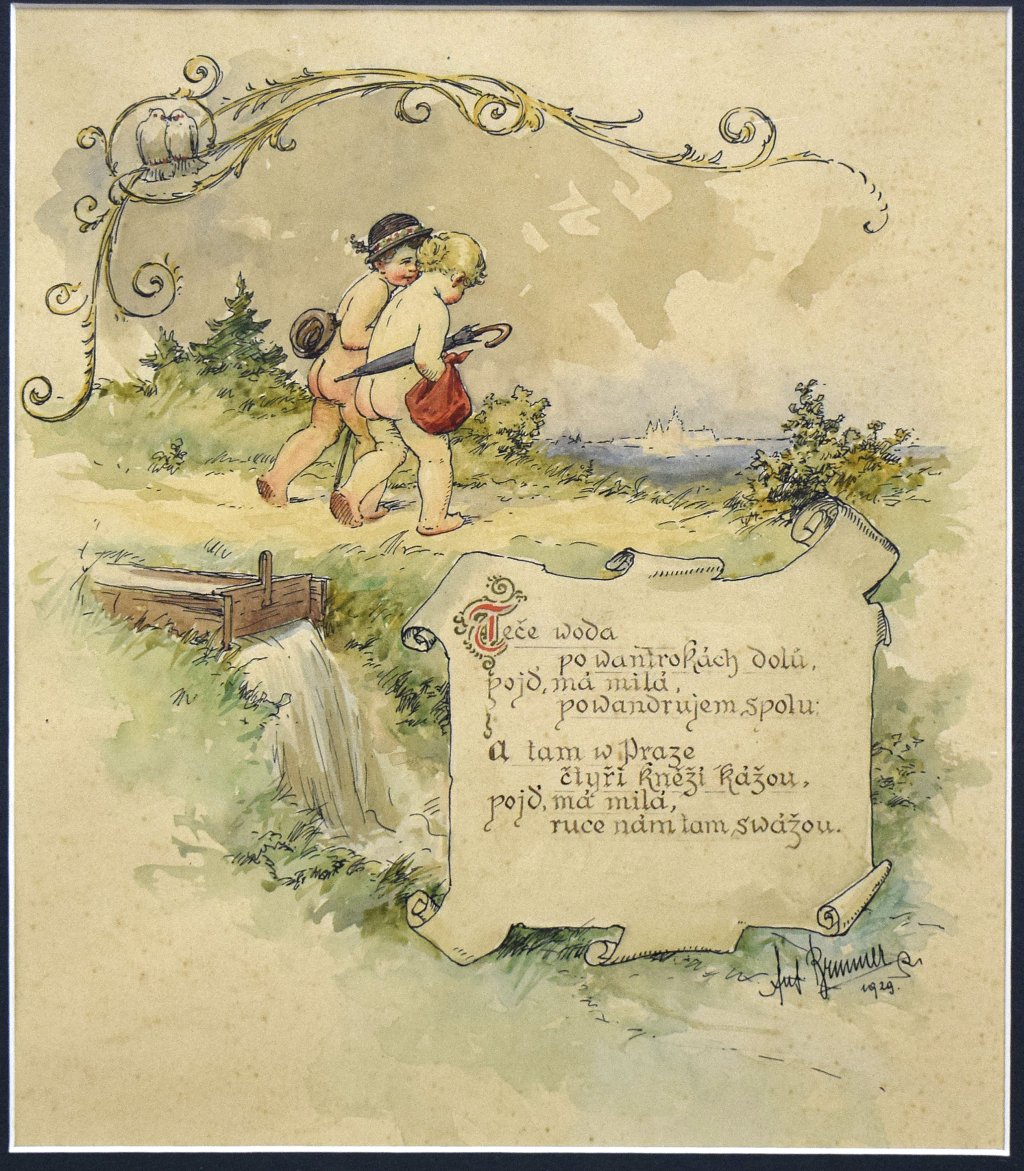 Teče woda
po wantrokách dolů,
pojď, má milá,
powandrujem spolu;
A tam w Praze
čtyři kněží kážou,
pojď, má milá,
ruce nám tam swážou.
Ant
1929.